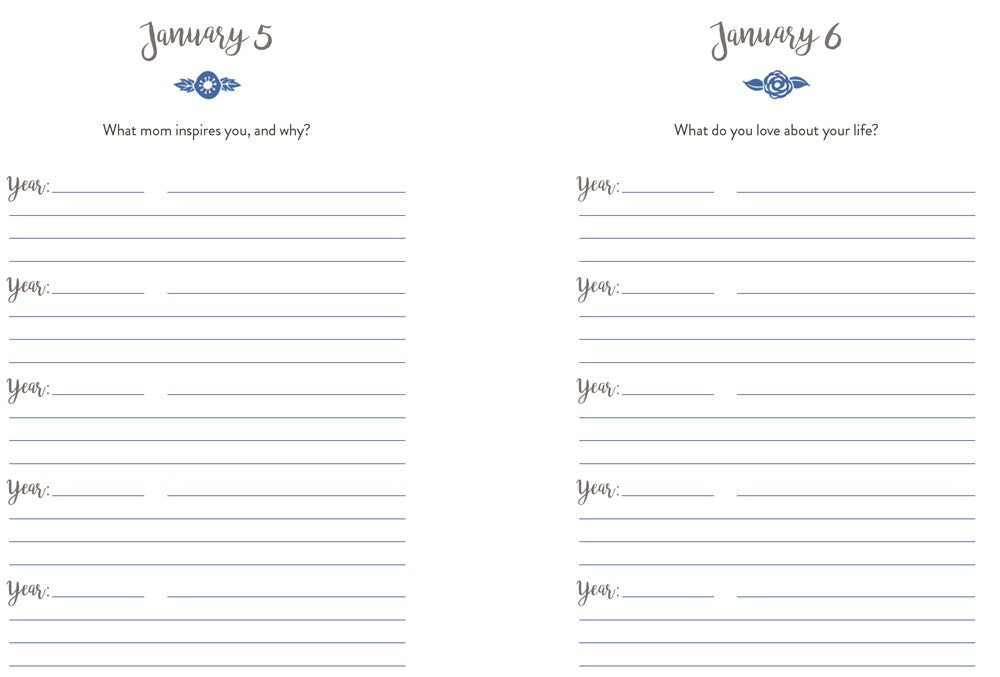 January 5
What mom inspires you, and why?
Year:
Year:
Year:
Year:
Year:
January 6
What do you love about your life?
Year:
Year:
Year:
Year:
Year: